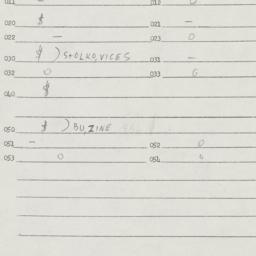 011 - 012 0
020 $ 021 -
022 - 023 0
030 $ ) STOLKO, VICES 031 -
032 0 033 0
040 $
050 $ ) BU, ZINE
051 - 052 0
053 0 054 0